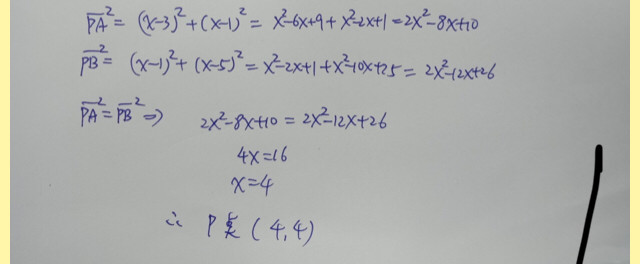 PA² = (x-3)²+(x-1)² = x²-6x+9+x²-2x+1=2x²-8x+10
PB² = (x-1)²+(x-5)²=x²-2x+1+x²-10x+25= 2x²-12x+26
PA²=PB² ⇒ 2x²-8x+10 = 2x²-12x+26
4x=16
x=4
∴ P点(4,4)